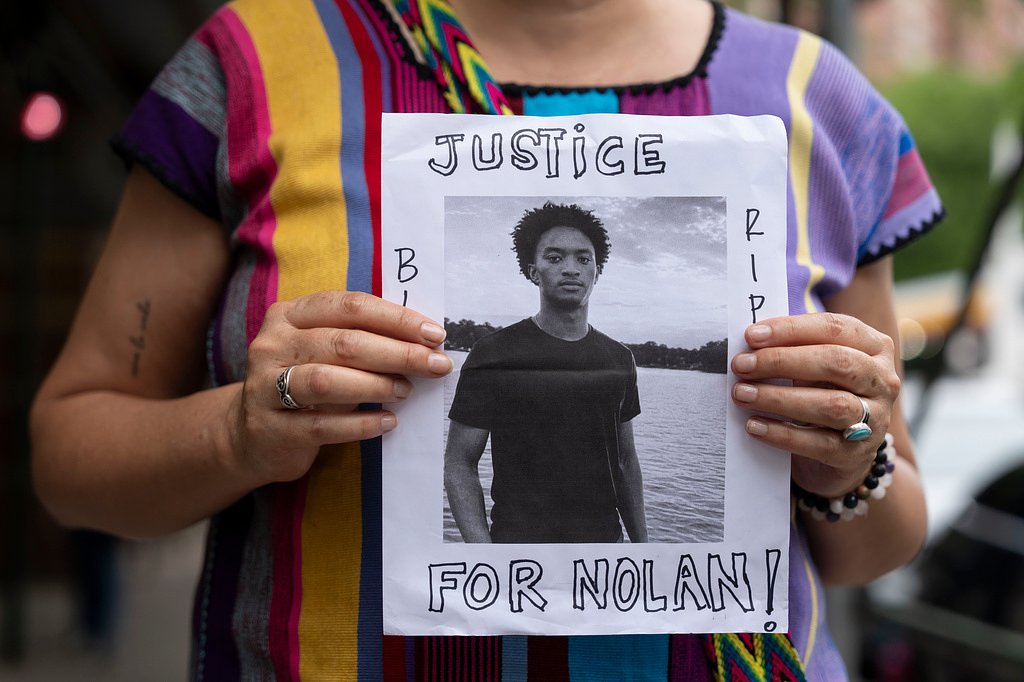 JUSTICE
B
RIP
FOR NOLAN!